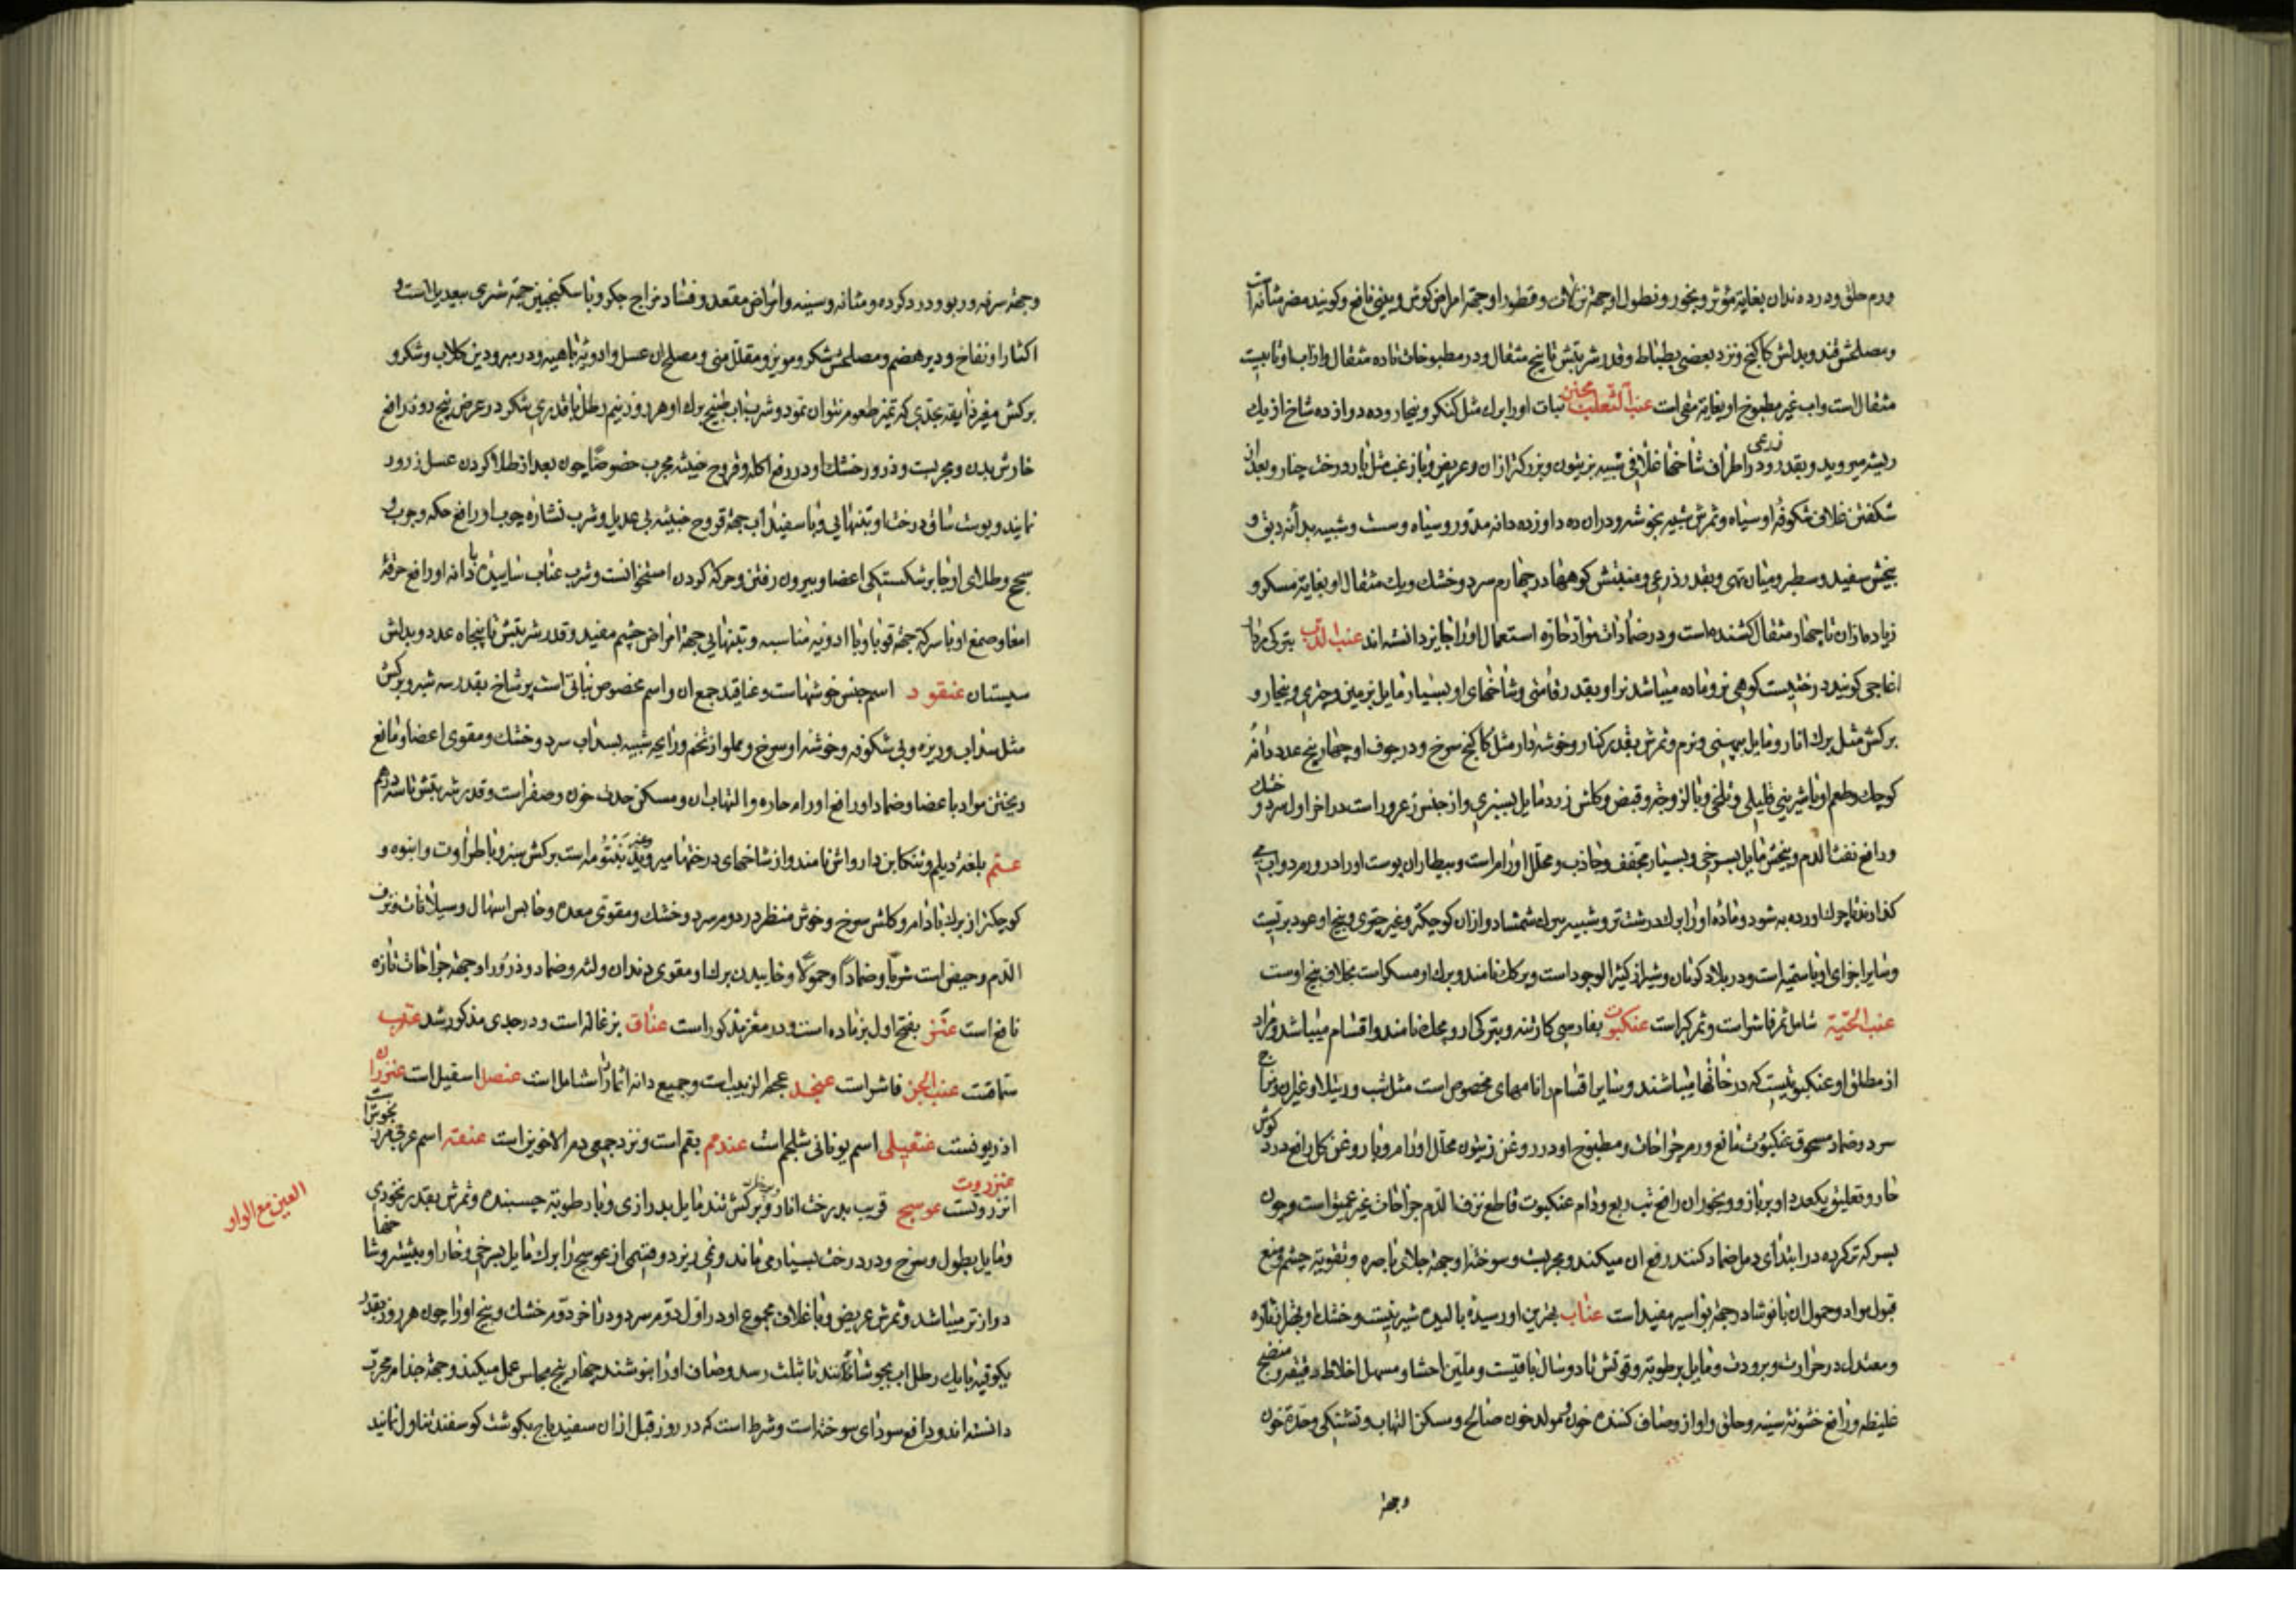 ورم حلق و درد دندان بغایة مؤثر و بخور و نطول او جهة نزلات و قطور او جهة امراض کوش و بینی نافع و کویند مضر مثانه است
و مصلحش قند و بدلش کاکنج و نزد بعضی بطباط و قدر شربتش تا پنج مثقال و در مطبوخات تا ده مثقال و از اب او تا بیست
مثقال است و اب غیر مطبوخ او بغایة مقی است عنب الثعلب مجنن نبات او را برک مثل کنکر و بیخار و ده دوازده شاخ از یک
ریشه میروید و بقدر ذرعی و در اطراف شاخها غلافی شبیه بزیتون و بزرکتر ازان و عریض و با زغب مثل بار درخت چنار و بعد از
شکفتن غلاف شکوفه او سیاه و ثمرش شبیه بخوشه و دران ده دوازده دانه مدور و سیاه و سست و شبیه بدانه دبق و
بیخش سفید و سطبر و میان تهی و بقدر ذرعی و منبتش کوهها در چهارم سرد و خشک و یک مثقال او بغایة مسکر و
زیاده ازان تا چهار مثقال کشنده است و در ضمادات مواد حاره استعمال او را جایز دانسته اند عنب الدب بترکی
اغاجی کویند درختیست کوهی نر و ماده میباشد نر او بقدر قامتی و شاخهای او بسیار مایل بزمین و چتری و بیخار و
برکش مثل برک انار و مایل بپهنی و نرم و ثمرش بقدر کنار و خوشه دار مثل کاکنج سرخ و در جوف او چهار پنج عدد دانه
کوچک و طعم او با شیرینی قلیلی و تلخی و با لزوجة و قبض و کلش زرد مایل بسبزی و از جنس زعرور است در اخر اول سرد و خشک
و رافع نفث الدم و بیخش مایل بسرخی و بسیار مجفف و جاذب و محلل اورام است و بیطاران پوست او را در ورم دواب می
کذارند تا چرک اورده به شود و ماده او را برک درشت تر و شبیه ببرک شمشاد و ازان کوچکتر و غیر چتری و بیخ او عود بربیست
و سایر اجزای او با سمیة است و در بلاد کرمان و شیراز کثیر الوجود است و برکک نامند و برک او مسکر است بخلاف بیخ اوست
عنب الحیة شامل ثمر فاشرا است و ثمر کبر است عنکبوت بفارسی کارتنه و بترکی ارومجک نامند و اقسام میباشد و مراد
از مطلق او عنکبوتیست که در خانها میباشند و سایر اقسام را نامهای مخصوص است مثل شبث و رتیلا و غیران و مزاج
سرد و ضماد مسحوق عنکبوت مانع ورم جراحات و مطبوخ او در روغن زیتون محلل اورام و با روغن کل رافع درد کوش
حار و تعلیق یکعدد او بر بازو و بخور ان رافع تب ربع و دام عنکبوت قاطع نزف الدم جراحات غیر عمیق است و چون
بسرکه تر کرده در ابتدای دمل ضماد کنند رفع ان میکند و مجربست و سوختهٔ او جهة جلای باصره و تقویة چشم و منع
قبول مواد و حمول ان با نوشادر جهة بواسیر مفید است عناب بهترین او رسیدهٔ بالیدهٔ شیرینست و خشک او بهتر از تازه
و معتدل در حرارت و برودت و مایل برطوبة و قوتش تا دو سال باقیست و ملین احشا و مسهل اخلاط رقیقه و منضج
غلیظه و رافع خشونة سینه و حلق و اواز و صاف کننده خون و مولد خون صالح و مسکن التهاب و تشنکی و حدة خون
و جهة
و جهة سرفه و ربو و درد کرده و مثانه و سینه و امراض مقعد و فساد مزاج جکر و با سکنجبین جهة شری بیعدیل است و
اکثار او نفاخ و دیر هضم و مصلحش شکر و مویز و مقلل منی و مصلح ان عسل و ادویهٔ باهیه و در مبرودین کلاب و شکر و
برکش مغیر ذایقه بحدی که تمیز طعوم نتوان نمود و شرب اب طبیخ برک او هر روز نیم رطل با قدری شکر در عرض پنج روز رافع
خارش بدن و مجربست و ذرور خشک او در رفع اکله و قروح خبیثه مجرب خصوصا چون بعد از طلا کردن عسل ذرور
نمایند و پوست ساق درخت او بتنهایی و با سفیداب جهة قروح خبیثه بی عدیل و شرب نشارهٔ چوب او رافع حکه و جرب و
سحج و طلای او جابر شکستکی اعضا و بیرون رفتن و حرکة کردن استخوانست و شرب عناب ساییده با دانه او رافع حرقة
امعا و صمغ او با سرکه جهة قوبا و با ادویه مناسبه و بتنهایی جهة امراض چشم مفید و قدر شربتش تا پنجاه عدد و بدلش
سپستان عنقود اسم جنس خوشهاست و عناقید جمع ان و اسم مخصوص نباتی است پر شاخ بقدر سه شبر و برکش
مثل سداب و ریزه و بی شکوفه و خوشه او سرخ و مملو از تخم و رایحه شبیه بسداب سرد و خشک و مقوی اعضا و مانع
ریختن مواد باعضا و ضماد او رافع اورام حاره و التهاب ان و مسکن حدت خون و صفراست و قدر شربتش تا سه درهم
عنم بلغة دیلم و تنکابن دارواش نامند و از شاخهای درختها میروید برکش سبز و با طراوت و انبوه و
کوچکتر از برک بادام و کلش سرخ و خوش منظر در دوم سرد و خشک و مقوی معده و حابس اسهال و سیلانات و نزف
الدم و حیض است شربا و ضمادا و حمولا و خاییدن برک او مقوی دندان و لثه و ضماد و ذرور او جهة جراحات تازه
نافع است عنز بفتح اول بز ماده است و در معز مذکور است عناق بزغاله است و در جدی مذکور شد عنرب
سماقست عنب الجن فاشرا است عنجد عجم الزبیب است و جمیع دانه انمار را شامل است عنصل اسقیل است
اذریونست عنقیلی اسم یونانی شلجم است عندم بقم است و نزد جمعی دم الاخوین است عنفته اسم عربی
عنزروت
انزروتست عوسج قریب بدرخت انار و برکش تند مایل بدرازی و با رطوبة چسبنده و ثمرش بقدر نخودی
و مایل بطول و سرخ و در درخت بسیار می ماند و نمی ریزد و قسمی از عوسج را برک مایل بسرخی و خار او بیشتر و شاخها
درازتر میباشد و ثمرش عریض و با غلاف مجموع او در اول دوم سرد و در اخر دوم خشک و بیخ او را چون هر روز بقدر
یکوقیه با یک رطل اب بجوشانند تا بثلث رسد و صاف او را بنوشند چهار پنج مجلس عمل میکند و جهة جذام مجرب
دانسته اند و رافع سودای سوخته است و شرط است که در روز قبل ازان سفیدباج بکوشت کوسفند تناول نمایند
العین مع الواو